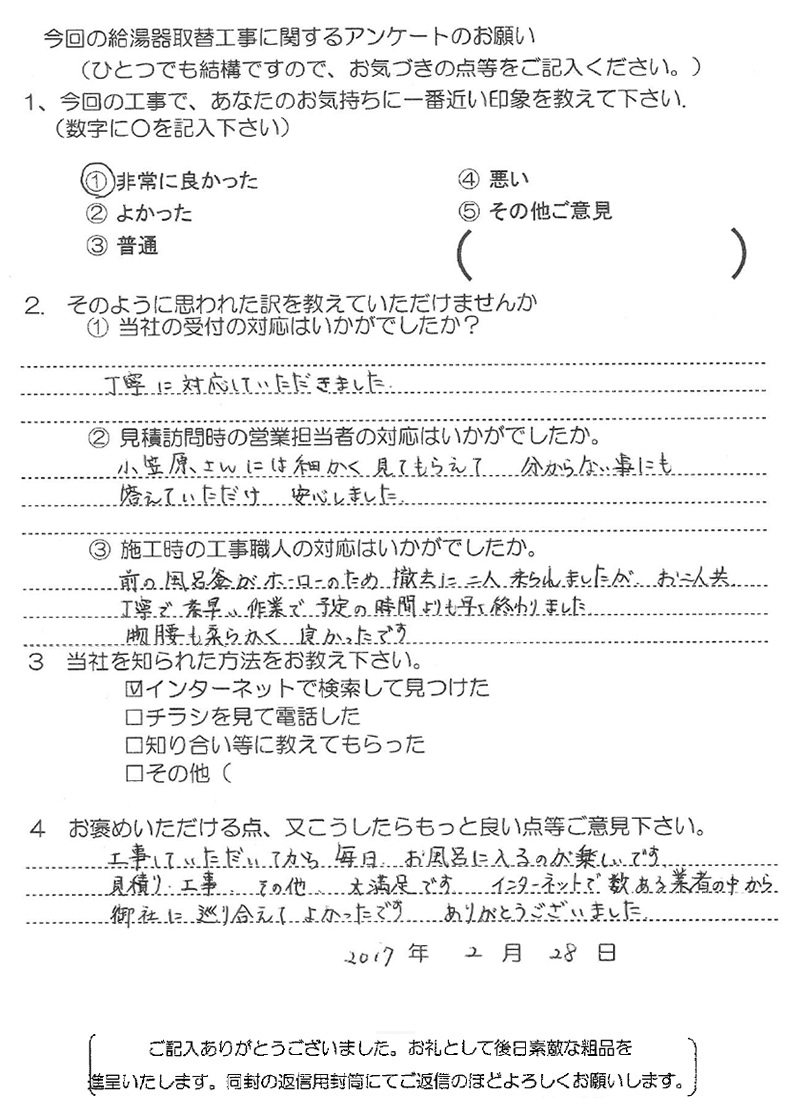 今回の給湯器取替工事に関するアンケートのお願い
（ひとつでも結構ですので、お気づきの点等をご記入ください。）
1、今回の工事で、あなたのお気持ちに一番近い印象を教えて下さい.
（数字に〇を記入下さい）
① 非常に良かった
② よかった
③ 普通
④ 悪い
⑤ その他ご意見
( )
2. そのように思われた訳を教えていただけませんか
① 当社の受付の対応はいかがでしたか？
丁寧に対応していただきました.
② 見積訪問時の営業担当者の対応はいかがでしたか。
小笠原さんには細かく見てもらえて 分からない事にも
答えていただけ 安心しました.
③ 施工時の工事職人の対応はいかがでしたか。
前の風呂釜がホーローのため 撤去に二人来られましたが、お二人共
丁寧で素早い作業で予定の時間よりも早く終わりました
物腰も柔らかく 良かったです
3 当社を知られた方法をお教え下さい。
☑インターネットで検索して見つけた
□チラシを見て電話した
□知り合い等に教えてもらった
□その他（
4 お褒めいただける点、又こうしたらもっと良い点等ご意見下さい。
工事していただいてから 毎日 お風呂に入るのが楽しいです
見積り、工事、その他、大満足です インターネットで数ある業者の中から
御社に巡り合えてよかったです ありがとうございました.
2017 年 2 月 28 日
ご記入ありがとうございました。お礼として後日素敵な粗品を
進呈いたします。同封の返信用封筒にてご返信のほどよろしくお願いします。